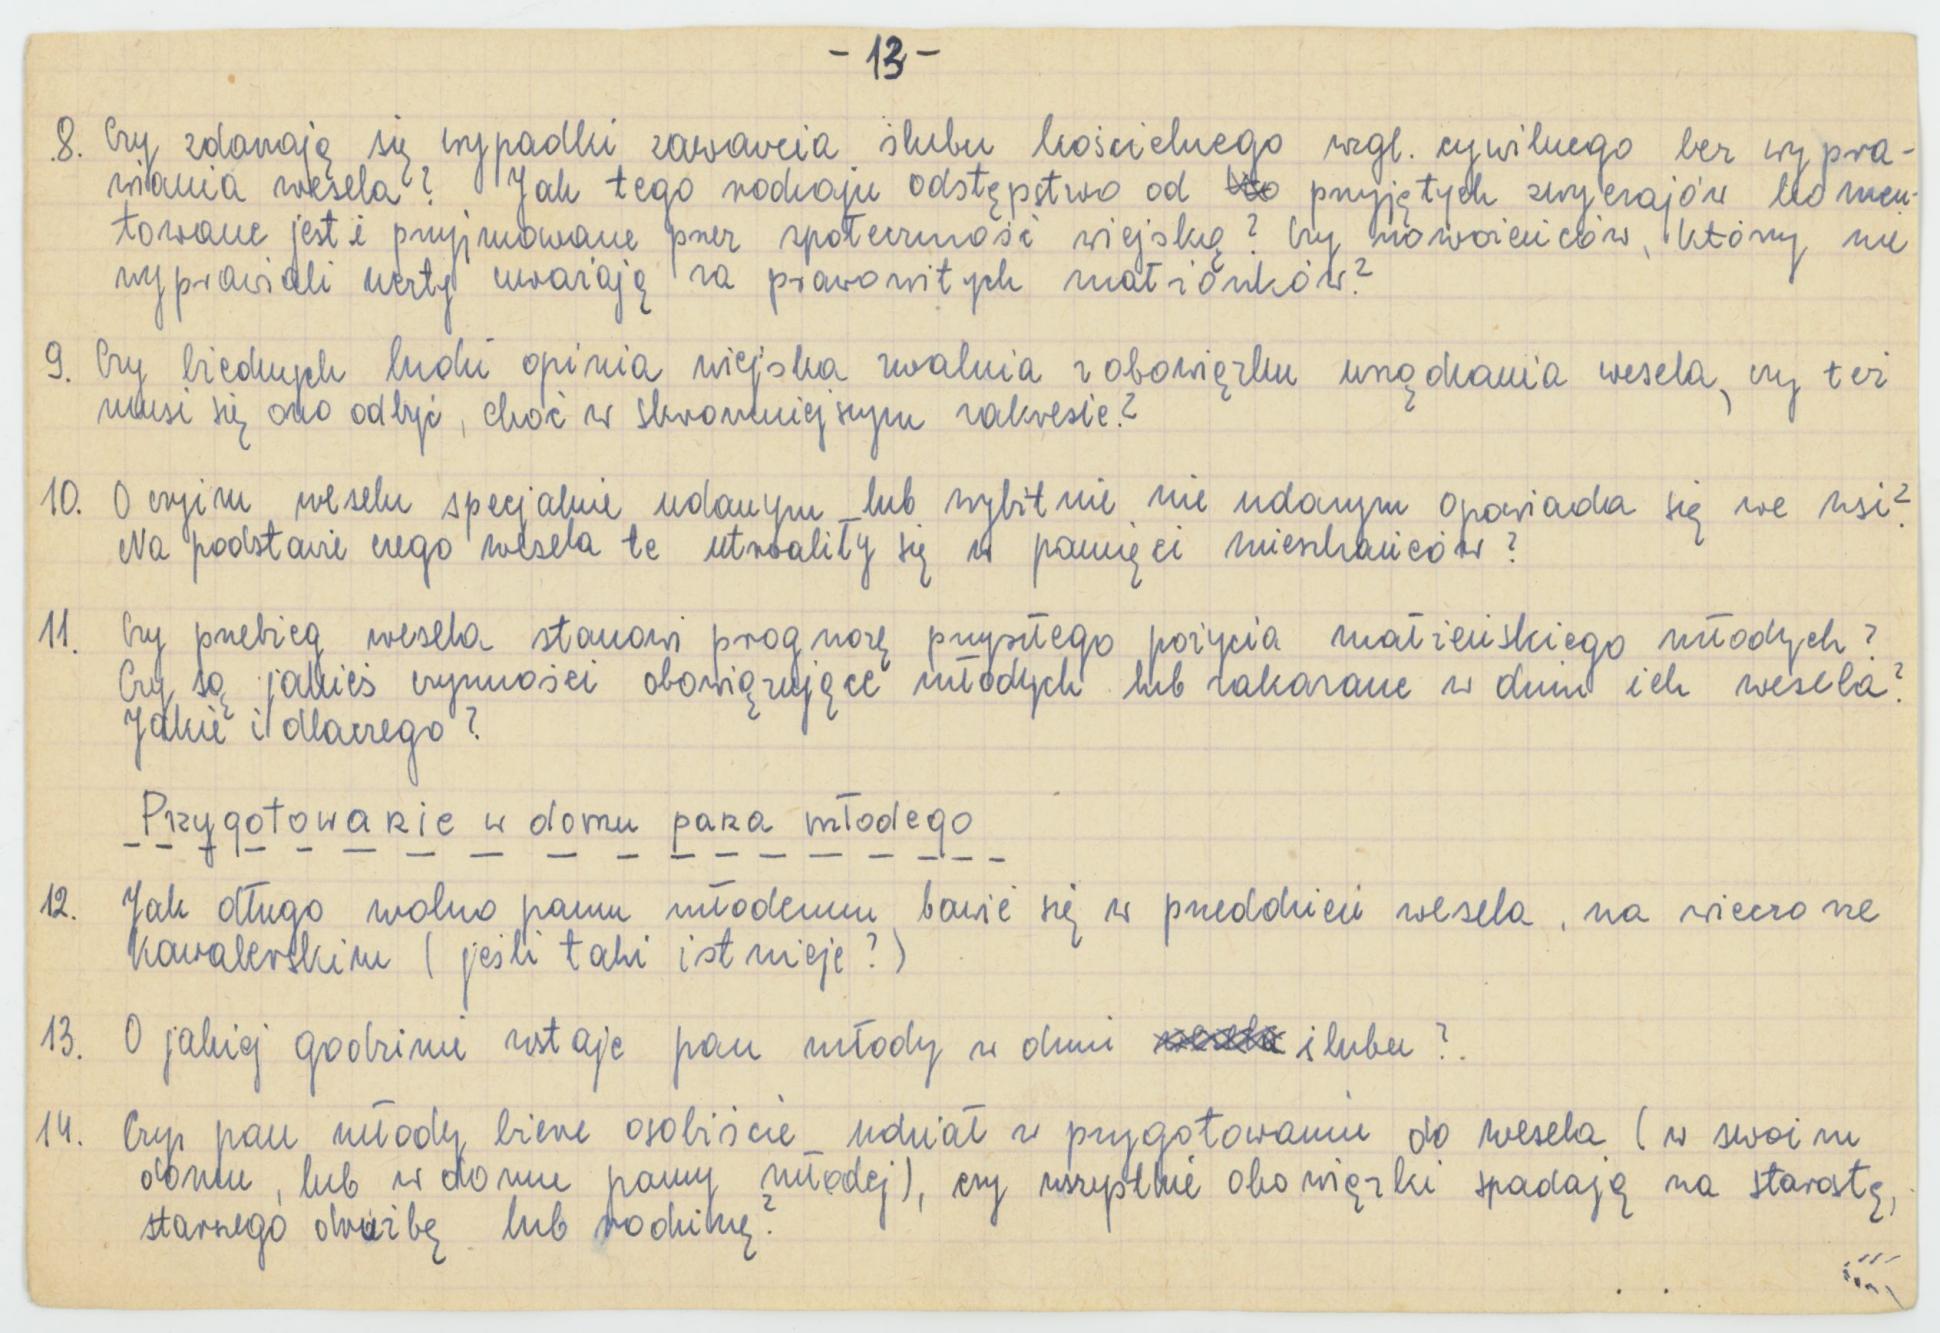 - 13 -
8. Czy zdarzają się wypadki zawarcia ślubu kościelnego wzgl. cywilnego bez wypra-
wiania wesela? Jak tego rodzaju odstępstwo od przyjętych zwyczajów komen-
towane jest i przyjmowane przez społeczność wiejską? Czy nowożeńców, którzy nie
wyprawiali uczty uważają za prawowitych małżonków?
9. Czy biednych ludzi opinia wiejska zwalnia z obowiązku urządzania wesela, czy też
musi się ono odbyć, choć w skromniejszym zakresie?
10. O czyim weselu specjalnie udanym lub wybitnie nie udanym opowiada się we wsi?
Na podstawie czego wesela te utrwaliły się w pamięci mieszkańców?
11. Czy przebieg wesela stanowi prognozę przyszłego pożycia małżeńskiego młodych?
Czy są jakieś czynności obowiązujące młodych lub zakazane w dniu ich wesela?
Jakie i dlaczego?
Przygotowanie w domu pana młodego
12. Jak długo wolno panu młodemu bawić się w przeddzień wesela, na wieczorze
kawalerskim (jeśli taki istnieje?)
13. O jakiej godzinie wstaje pan młody w dniu ślubu?
14. Czy pan młody bierze osobiście udział w przygotowaniu do wesela (w swoim
domu, lub w domu panny młodej), czy wszystkie obowiązki spadają na starostę,
starszego drużbę lub rodzinę?